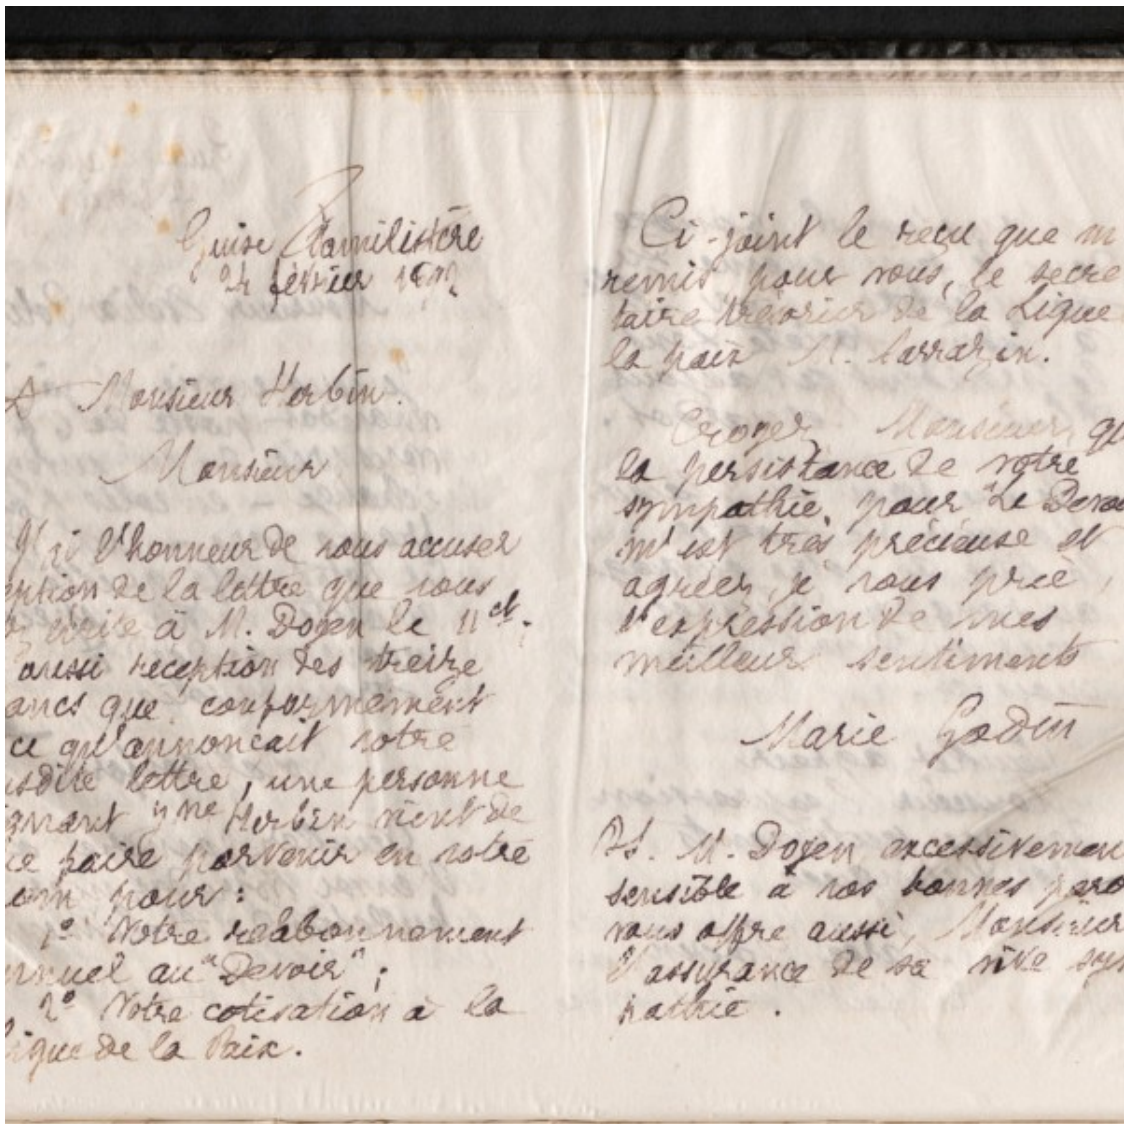 Guise Familistère
24 février
A Monsieur Herbin.
Monsieur
J'ai l'honneur de vous accuser
eption de la lettre que vous
écrite à M. Doyen le 11 ct.
aussi réception des treize
ancs que conformément
ce qu'annonçait votre
usdite lettre, une personne
gnant Mme Herbin vient de
me faire parvenir en votre
om pour:
1o Votre réabonnement
nnuel au "Devoir";
2o Votre cotisation à la
igue de la Paix.
Ci-joint le reçu que m
remis pour vous, le secré
taire trésorier de la Ligue
la paix M. Sarrazin.
Croyez, Monsieur, qu
la persistance de votre
sympathie pour "Le Devo
m'est très précieuse et
agréez, je vous prie,
l'expression de mes
meilleurs sentiments
Marie Godin
PS. M. Doyen excessivemen
sensible à vos bonnes paro
vous offre aussi, Monsieur
l'assurance de sa vive sym
pathie.